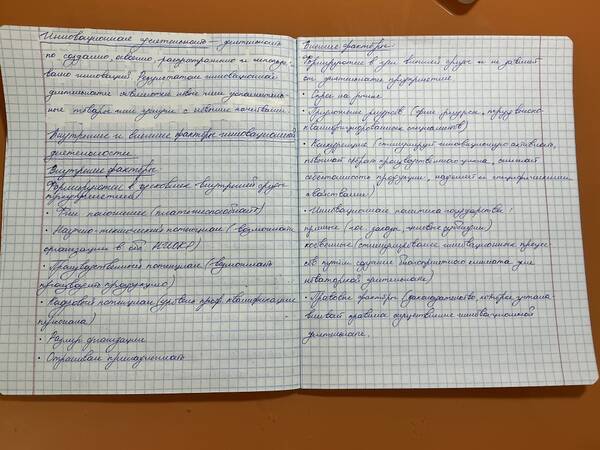 Инновационная деятельность – деятельность
по созданию, освоению, распространению и использо-
ванию инноваций. Результатом инновационной
деятельности являются новые или дополнитель-
ные товары или услуги с новыми качествами.
Внутренние и внешние факторы инновационной
деятельности
Внутренние факторы
Формируются в
внутренней среды
предприятия)
• Фин. положение (платежеспособность)
• Научно-технический потенциал (возможность
организации в обл. НИОКР)
• Производственный потенциал (возможность
производить продукцию)
• Кадровый потенциал (уровень проф. квалификации
персонала)
• Размер организации
• Отраслевая принадлежность
Внешние факторы
Формируются в
внешней среды и не зависят
от деятельности предприятия
• Спрос на рынке
• Предложение ресурсов (фин. ресурсы,
квалифицированных специалистов)
• Конкуренция (стимулирует инновационную активность,
производственного
снижает
себестоимость продукции, наделяет её специфическими
свойствами)
• Инновационная политика государства:
прямые (гос. заказы, целевые субсидии)
косвенные (стимулирование инновационных процес-
сов путём создания благоприятного климата для
новаторской деятельности)
• Правовые факторы (законодательство, которое устана-
вливает правила осуществления инновационной
деятельности.